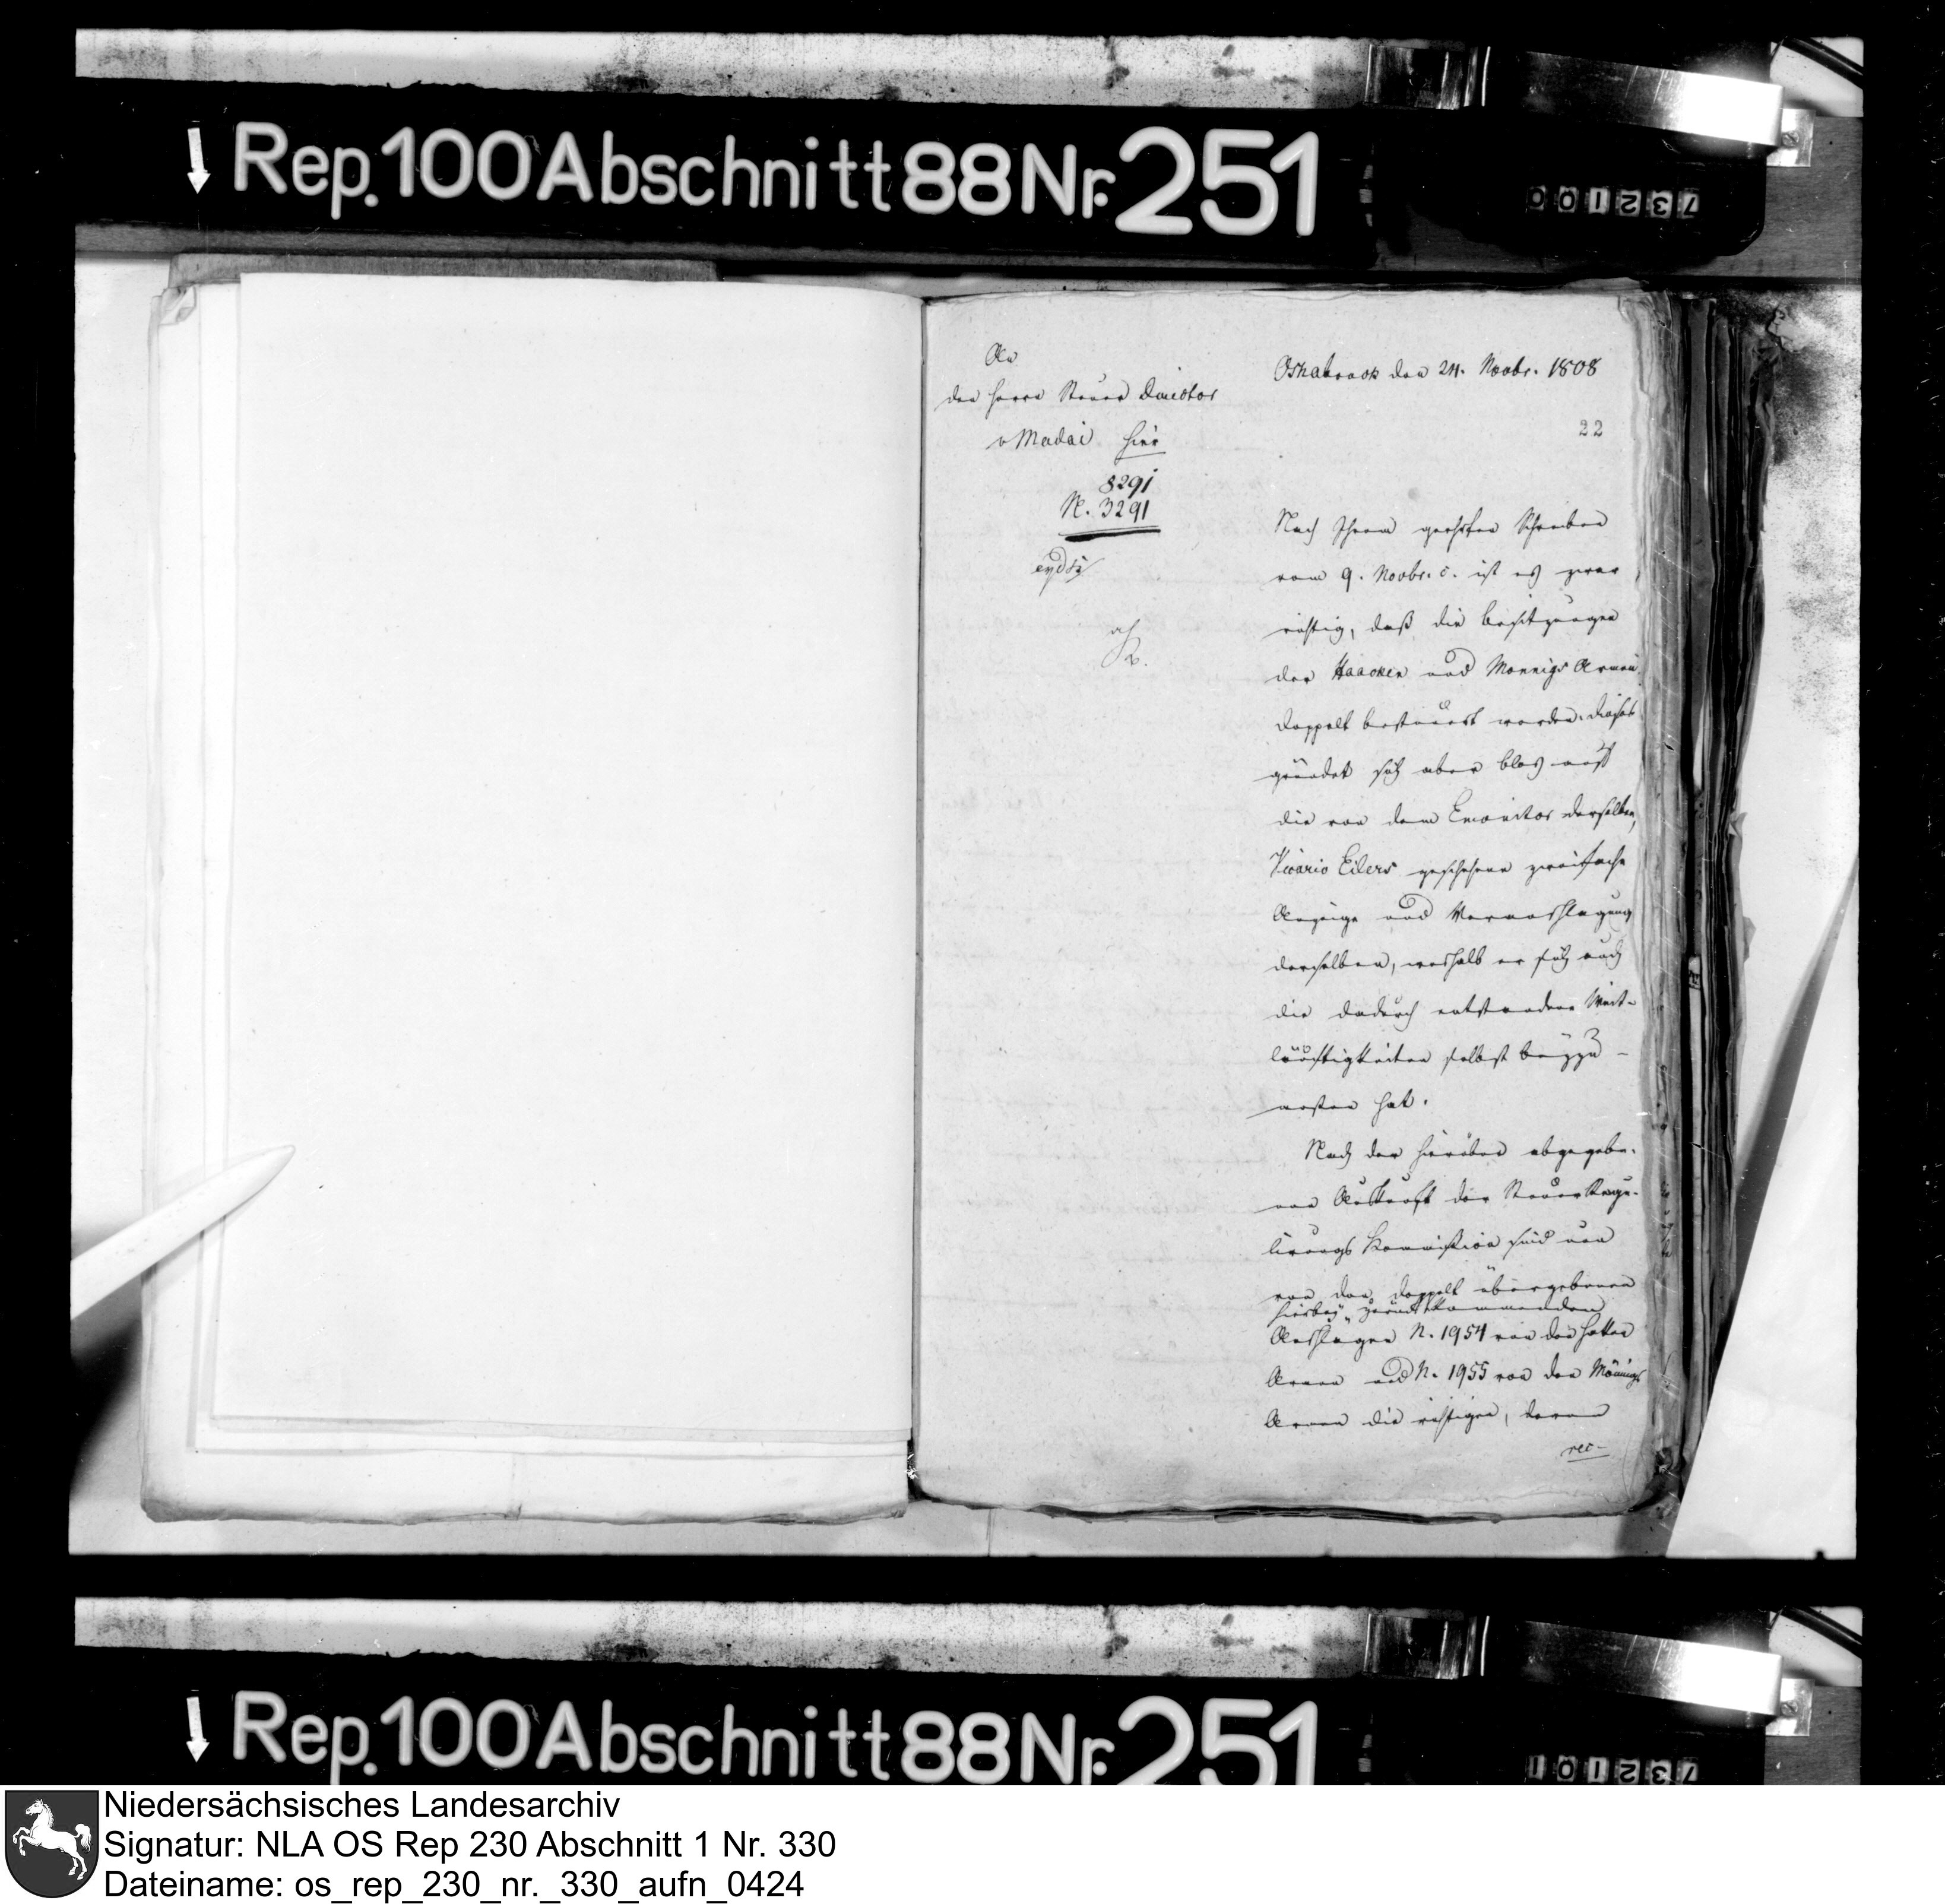 Rep. 100 Abschnitt 88 Nr. 251
732100
An
den Herrn Steuer Director
v Madai hier
8291
N. 3291
Osnabrück den 24. Novbr. 1808
22
Nach Ihrem geehrten Schreiben
vom 9. Novbr. c. ist es zwar
richtig, daß die Besitzungen
der Haacken und Monnigs Armen
doppelt besteuert worden. Dieses
gründet sich aber blos auf
die von dem Executor derselben,
Vicario Eilers geschehene zweifache
Anzeige und Veranschlagung
derselben, weshalb er sich auch
die dadurch entstandene Weit-
läuftigkeiten selbst beyzu-
messen hat.
Nach der hierüber abgegebe-
nen Auskunft der Steuer Regu-
lirungs Kommission sind nun
von den doppelt übergebenen
hierbey zurückkommenden
Anschlägen N. 1954 von den Haken
Armen und N. 1955 von den Mönnigs
Armen die richtigen, deren
rec-
Rep. 100 Abschnitt 88 Nr. 251
732101
Niedersächsisches Landesarchiv
Signatur: NLA OS Rep 230 Abschnitt 1 Nr. 330
Dateiname: os_rep_230_nr._330_aufn_0424